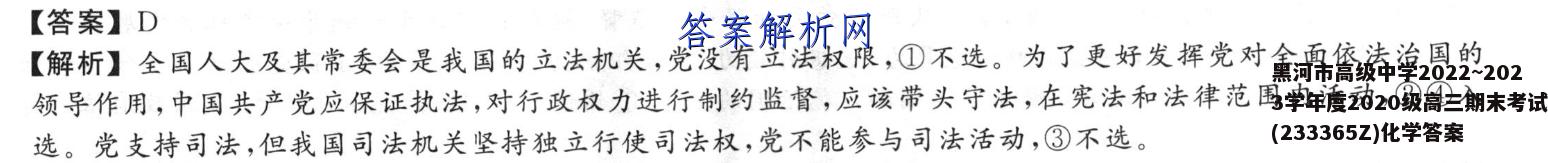 【答案】D
答案解析网
【解析】全国人大及其常委会是我国的立法机关,党没有立法权限,①不选。为了更好发挥党对全面依法治国的
领导作用,中国共产党应保证执法,对行政权力进行制约监督,应该带头守法,在宪法和法律范围内活动,②④入
选。党支持司法,但我国司法机关坚持独立行使司法权,党不能参与司法活动,③不选。
黑河市高级中学2022~202
3学年度2020级高三期末考试
(233365Z)化学答案